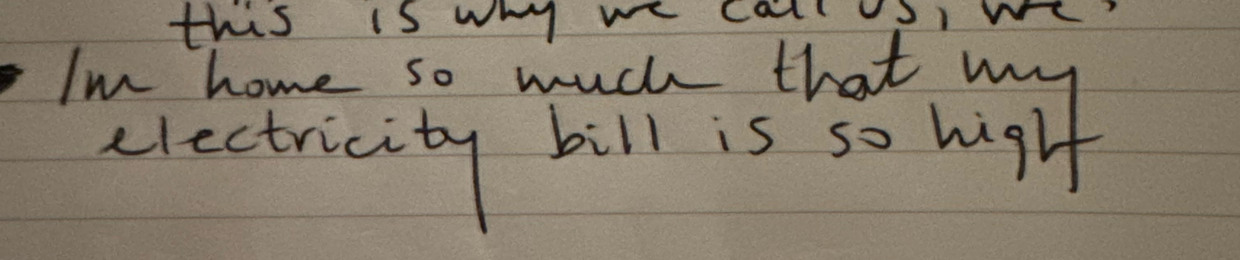 this is why we call us, we
• Im home so much that my
electricity bill is so high